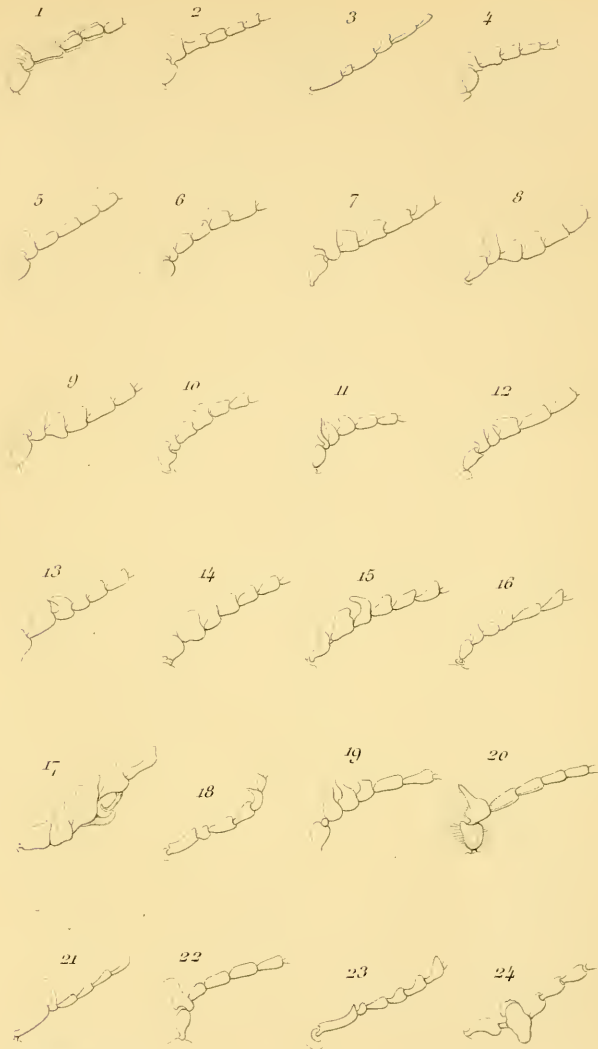 1 2 3 4
5 6 7 8
9 10 11 12
13 14 15 16
17 18 19 20
21 22 23 24